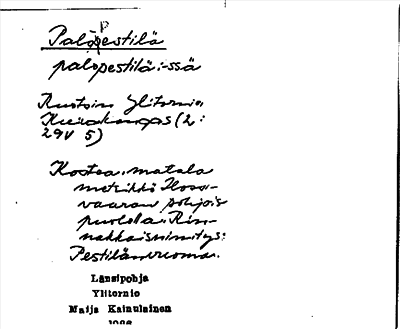 Palopestilä
palopestilä :-ssä
Ruotsin Ylitornio
Kuivakangas (2:
29V 5)
Kostea, matala
metsikkö Iloso-
vaaran pohjois
puolella. Rin-
nakkaisnimitys:
Pestilänvuoma.
Länsipohja
Ylitornio
Maija Kainulainen